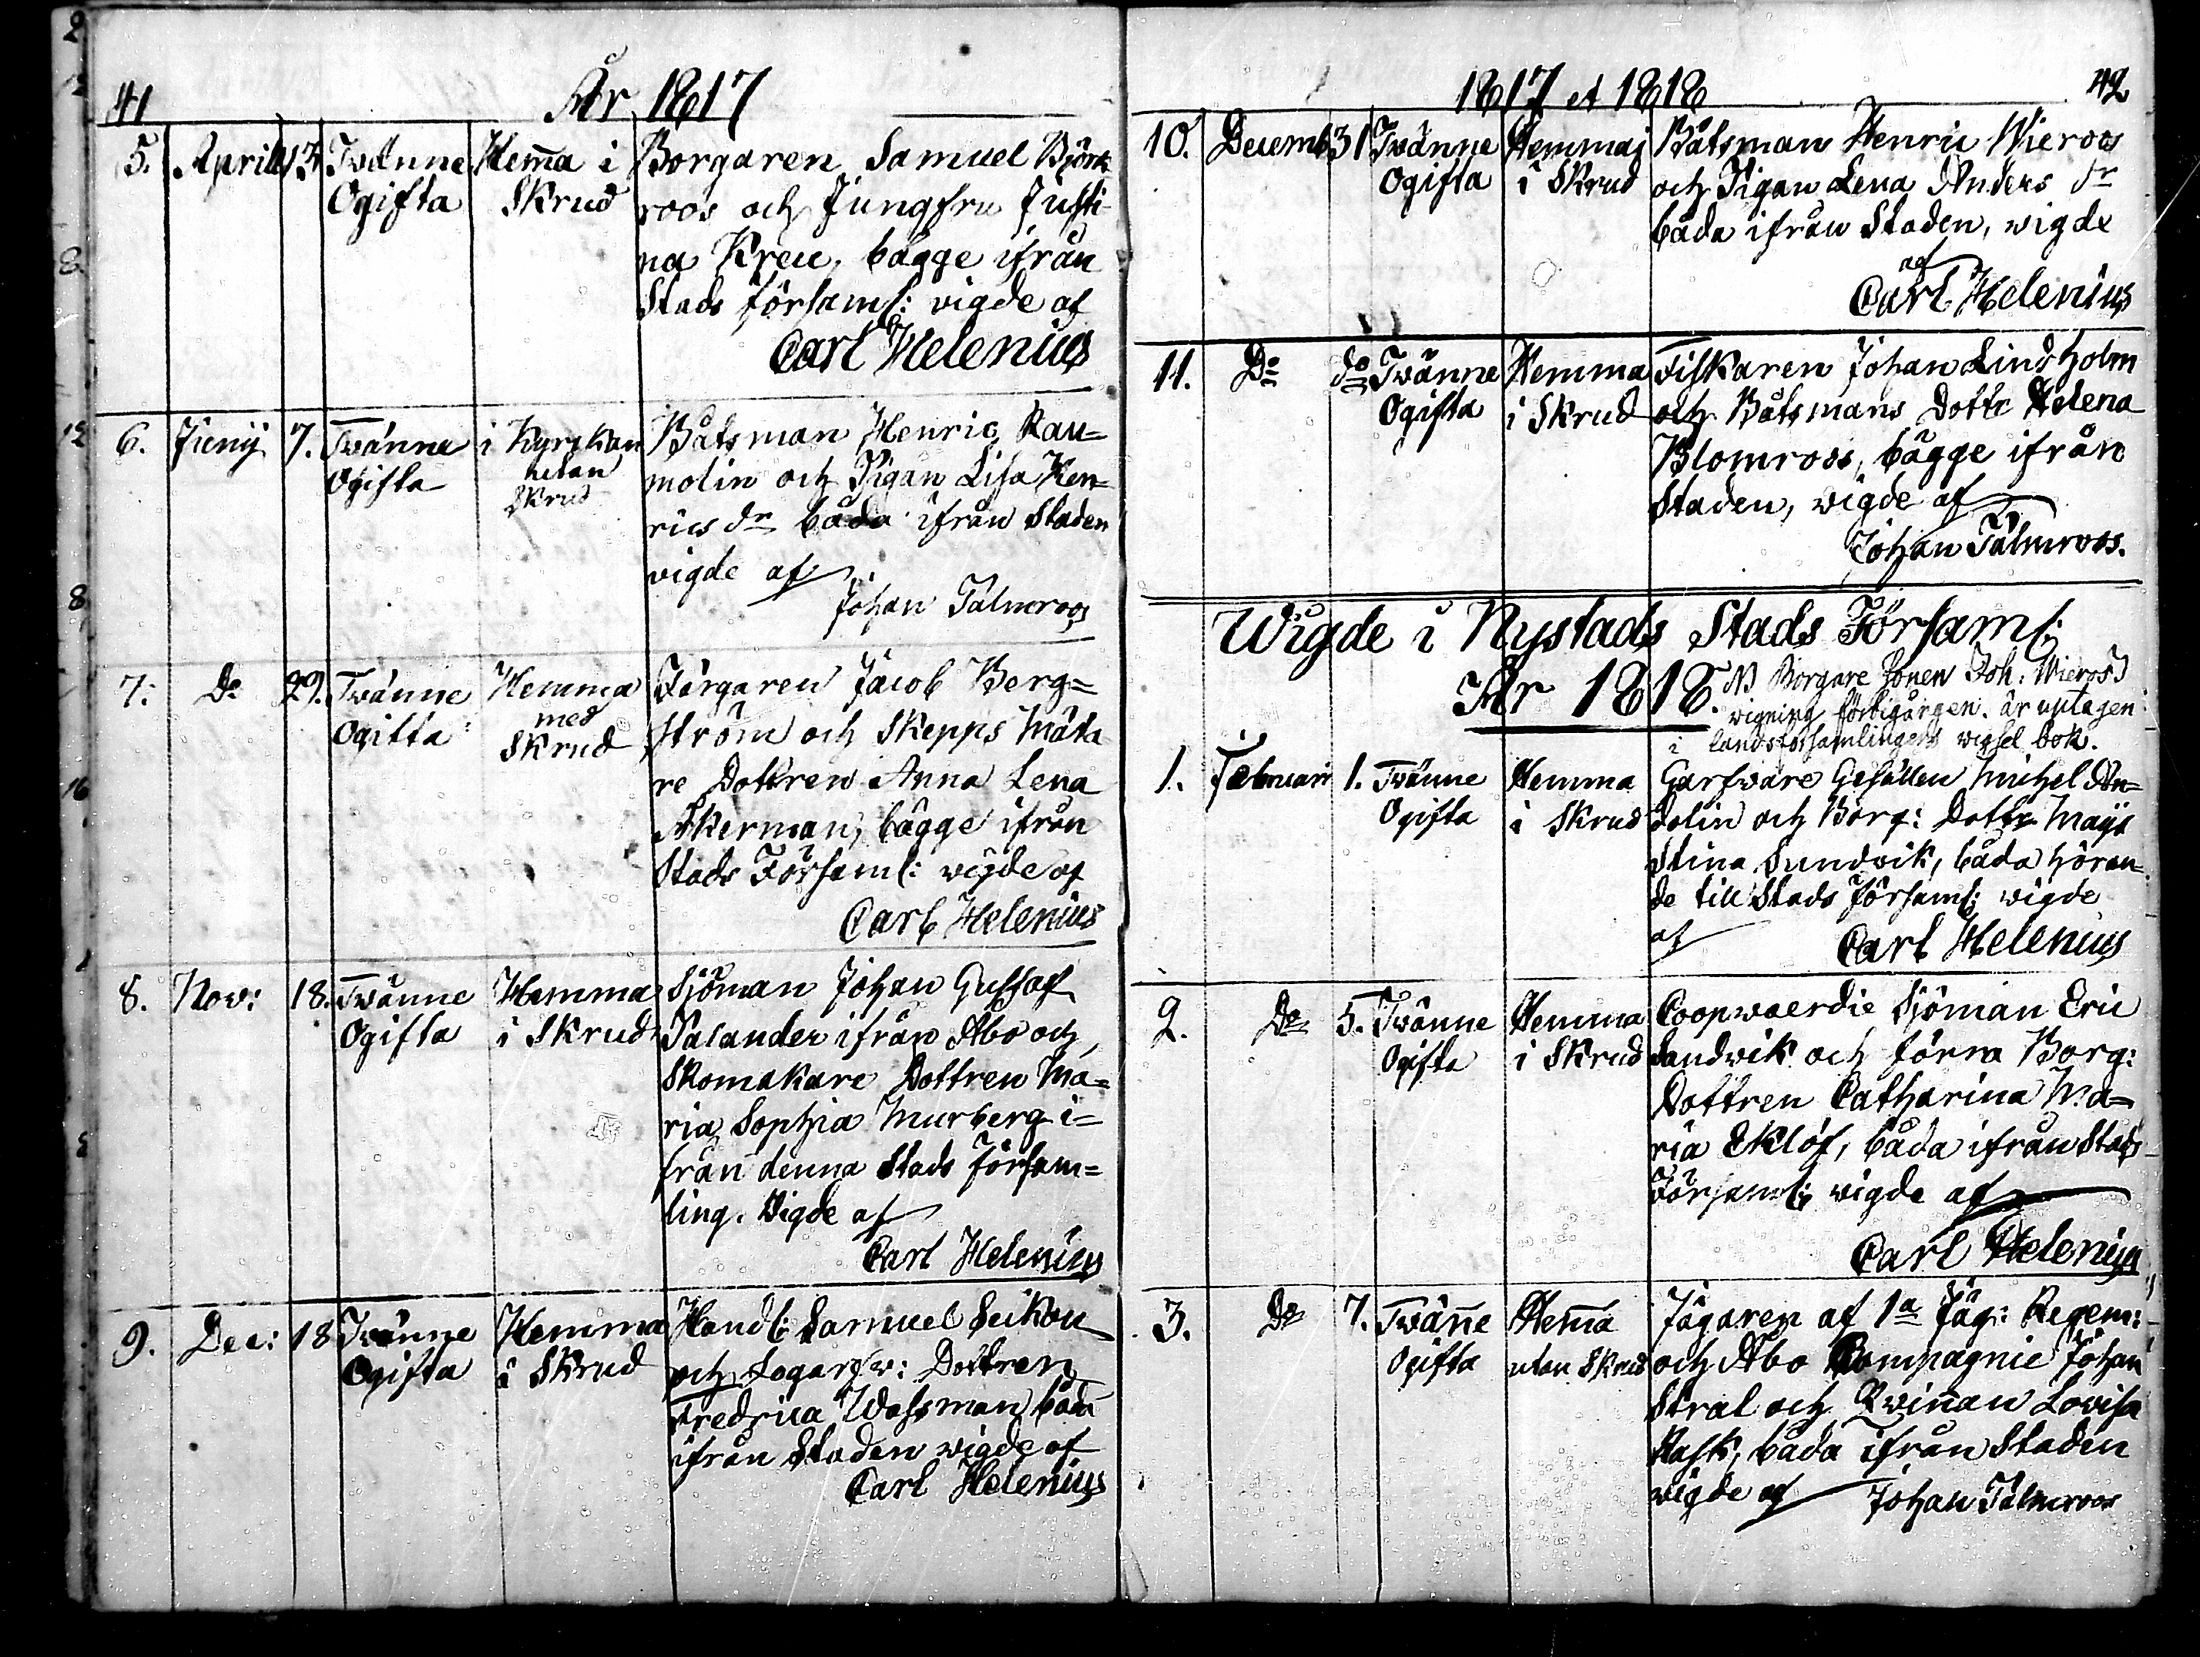 41
År 1817
5. Aprill 13. Twänne Hem̄a i Borgaren Samuel Björk
Ogifta Skrud roos och Jungfru Justi-
na Kreu, bägge ifrån
Stads församl: vigde af
Carl Helenius
6. Junij 7. Twänne i Kyrkan Båtsman Henric Rau=
Ogifta utan molin och Pigan Lisa Hen=
Skrud rics dr båda ifrån Staden
vigde af
Johan Palmroos
7. Do 29. Twänne Hemma Färgaren Jacob Berg=
Ogifta med ström och Skepps Mäta
Skrud re Dottren Anna Lena
Åkerman, bägge ifrån
Stads Församl: vigde af
Carl Helenius
8. Nov: 18. Twänne Hemma Sjöman Johan Gustaf
Ogifta i Skrud Palander ifrån Åbo och
Skomakare Dottren Ma=
ria Sophia Murberg i=
från denna Stads Försam=
ling. Vigde af
Carl Helenius
9. Dec: 18 Twänne Hemma Handl: Samuel Seikou
Ogifta i Skrud och Logarfw: Dottren
Fredrica Wassman båda
ifrån Staden wigde af
Carl Helenius
1817 et 1818 42
10. Decemb 31 Twänne Hemmaj Båtsman Henric Wieroos
Ogifta i Skrud och Pigan Lena Anders dr
båda ifrån Staden, wigde
af
Carl Helenius
11. Do do Twänne Hemma Fiskaren Johan Lindholm
Ogifta i Skrud och Båtsmans Dottr Helena
Blomroos, bägge ifrån
Staden, wigde af
Johan Palmroos.
Wigde i Nystads Stads Församl:
År 1818. NB Borgare Sonen Joh: Wieros's
wigning förbigången. är uptagen
i landsförsamlingens wigsel bok.
1. Februari 1. Twänne Hemma Garfware Gesällen Michel An=
Ogifta i Skrud dolin och Borg: Dottr Maja
Stina Sundvik, båda hören=
de till Stads Församl: wigde
af Carl Helenius
2. Do 5. Twänne Hemma Coopwaerdie Sjöman Eric
Ogifta i Skrud Sandvik och förra Borg:
Dottren Catharina Ma=
ria Eklöf, båda ifrån Stads
Församl: wigde af
Carl Helenius
3. Do 7. Twän̄e Hem̄a Jägaren af 1a Jäg: Regem:
Ogifta utan Skrud och Åbo Compagnie Johan
Stral och Qwin̄an Lovisa
Rask, båda ifrån Staden
wigde af Johan Palmroos